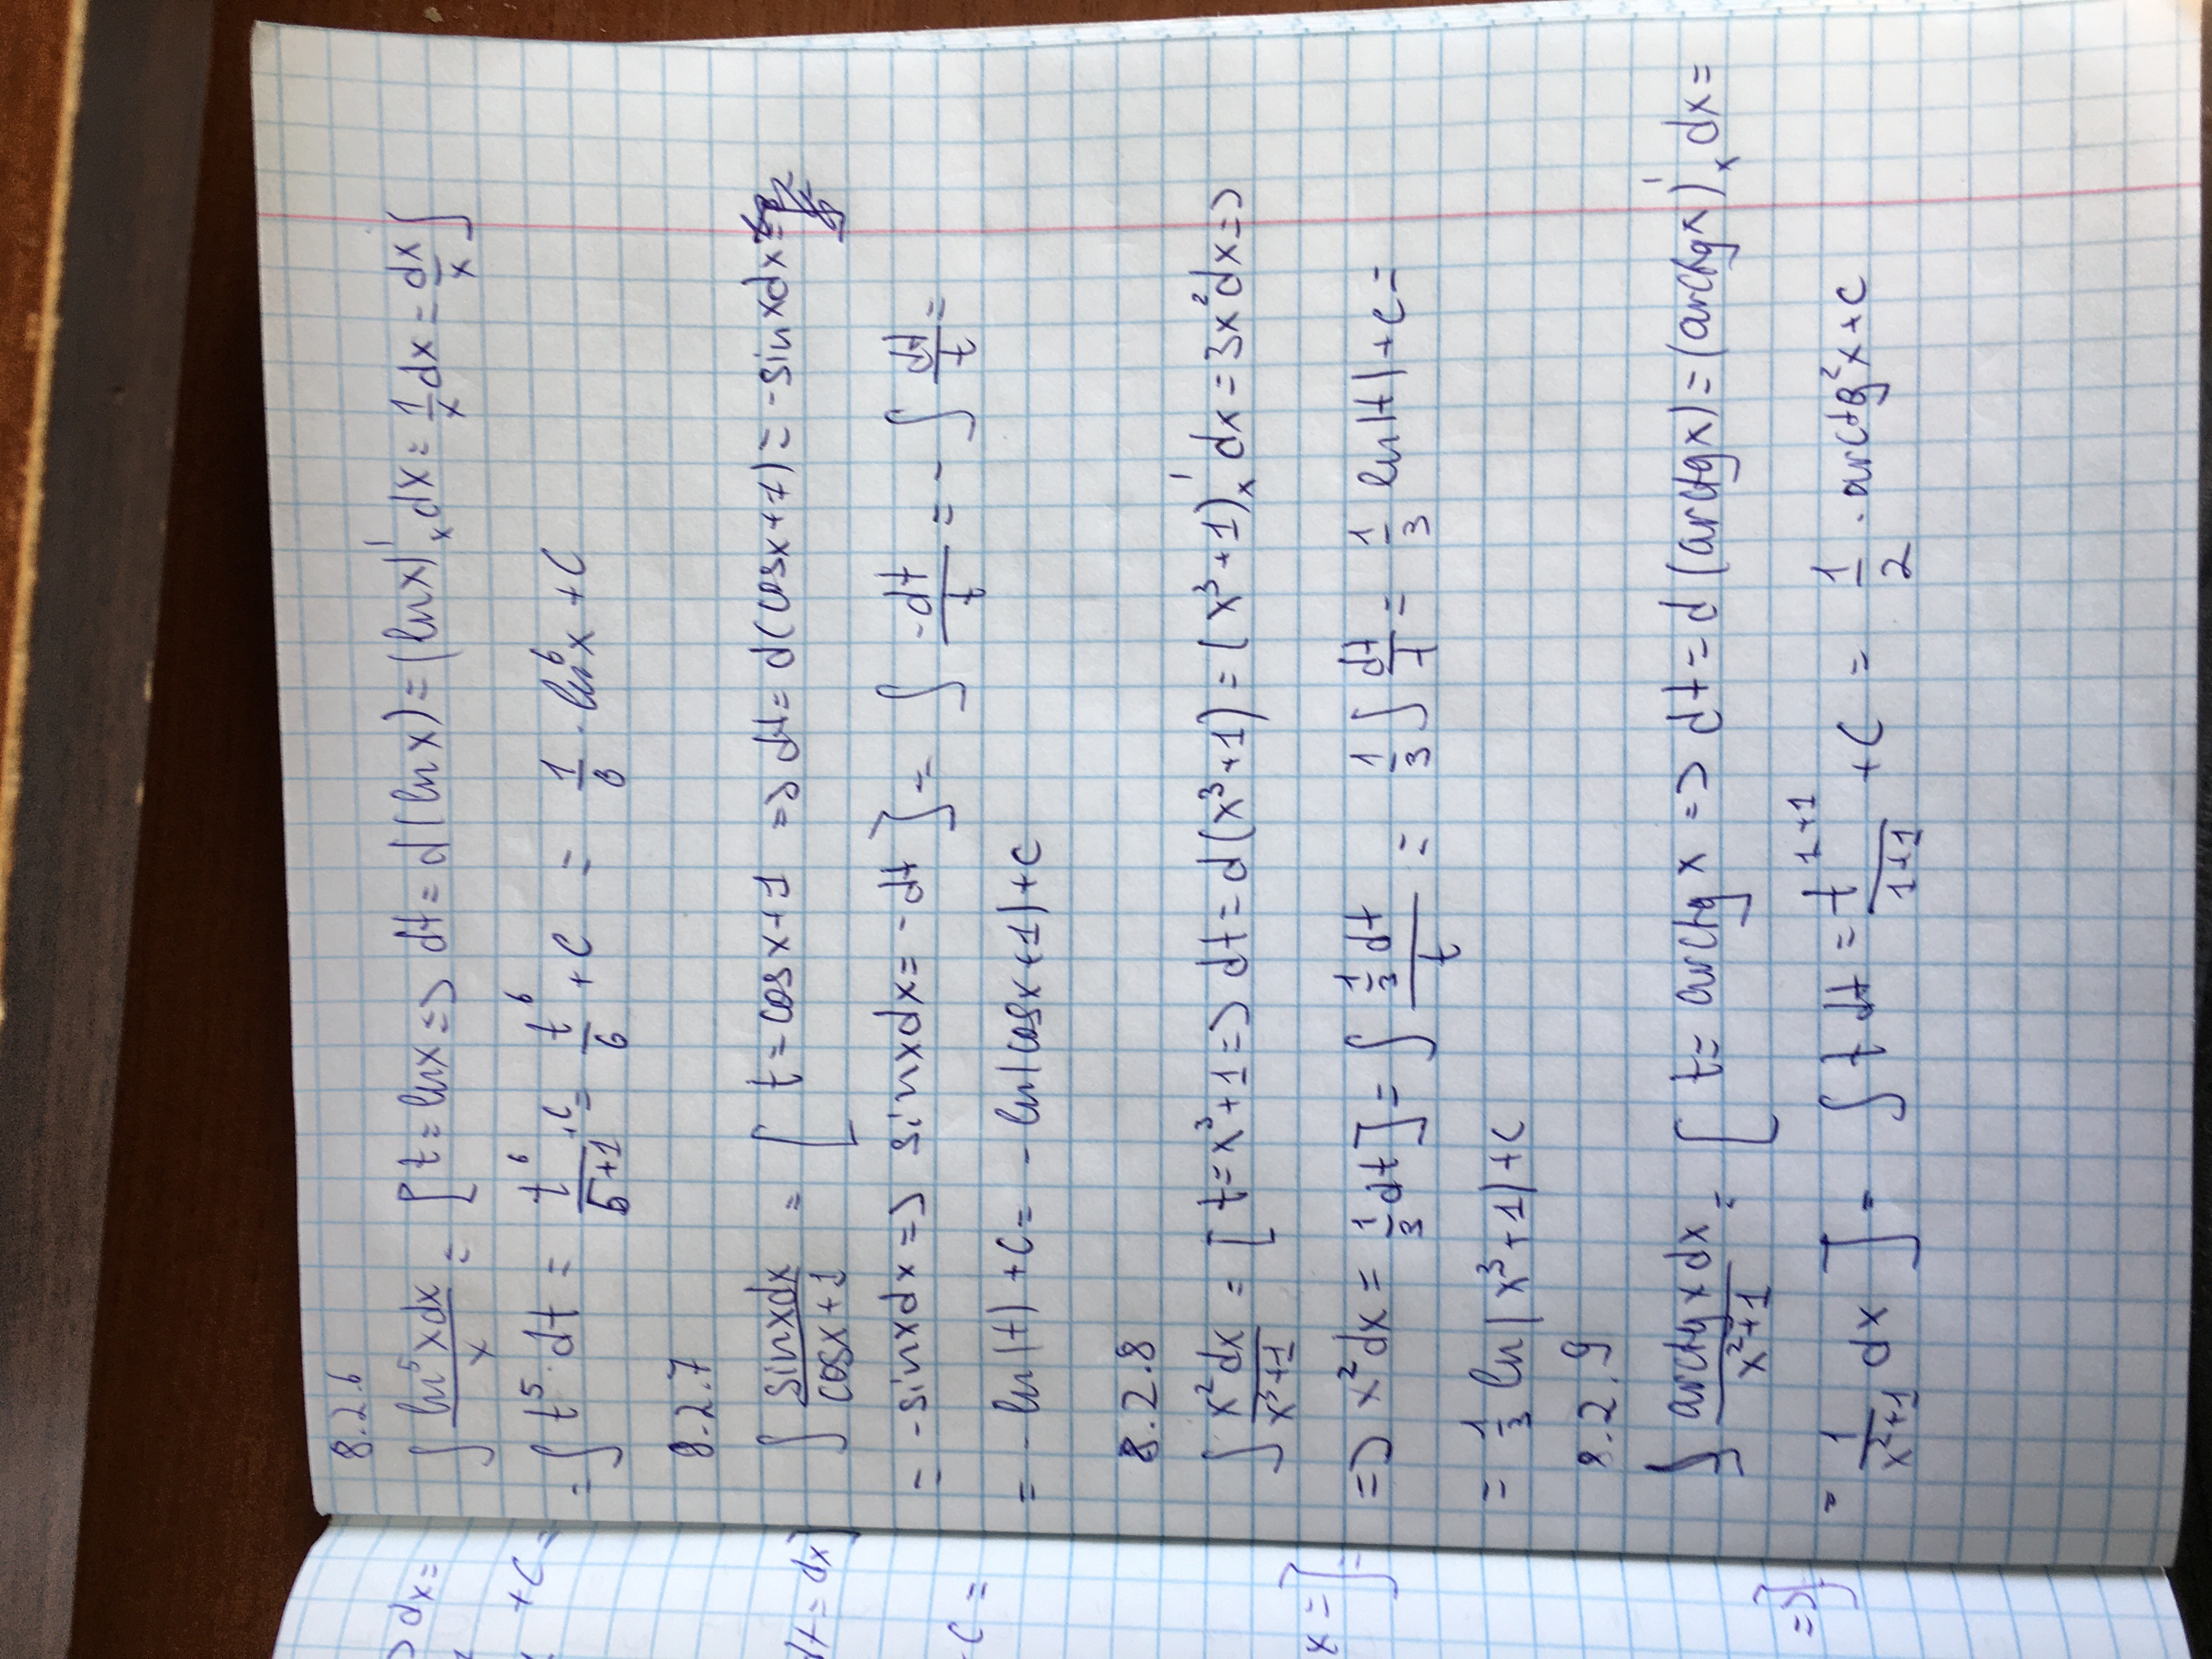 8.2.6
∫ ln⁵x dx / x = [ t = lnx => dt = d(lnx) = (lnx)'ₓ dx = 1/x dx = dx/x ]
= ∫ t⁵ · dt = t⁶/(5+1) + C = t⁶/6 + C = 1/6 · ln⁶x + C
8.2.7
∫ sinxdx / (cosx+1) = [ t = cosx+1 => dt = d(cosx+1) = -sinxdx =
= -sinxdx => sinxdx = -dt ] = ∫ -dt/t = - ∫ dt/t =
= - ln|t| + C = - ln|cosx+1| + C
8.2.8
∫ x²dx / (x³+1) = [ t = x³+1 => dt = d(x³+1) = (x³+1)'ₓ dx = 3x²dx =>
=> x²dx = 1/3 dt ] = ∫ (1/3 dt)/t = 1/3 ∫ dt/t = 1/3 ln|t| + C =
= 1/3 ln|x³+1| + C
8.2.9
∫ arctgxdx / (x²+1) = [ t = arctgx => dt = d(arctgx) = (arctgx)'ₓ dx =
= 1/(x²+1) dx ] = ∫ t dt = t¹⁺¹/(1+1) + C = 1/2 · arctg²x + C
> dx =
+ C =
dt = dx]
C =
x = ] =
=> ]